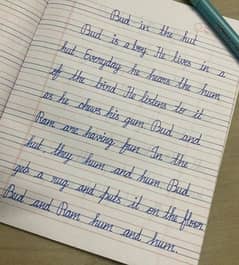 Bud in the hut
Bud is a boy. He lives in a
hut Everyday he hears the hum
of the bird He listens to it
as he chews his gum Bud and
Ram are having fun In the
hut, they hum and hum Bud
got a rug and puts it on the floor.
Bud and Ram hum and hum.